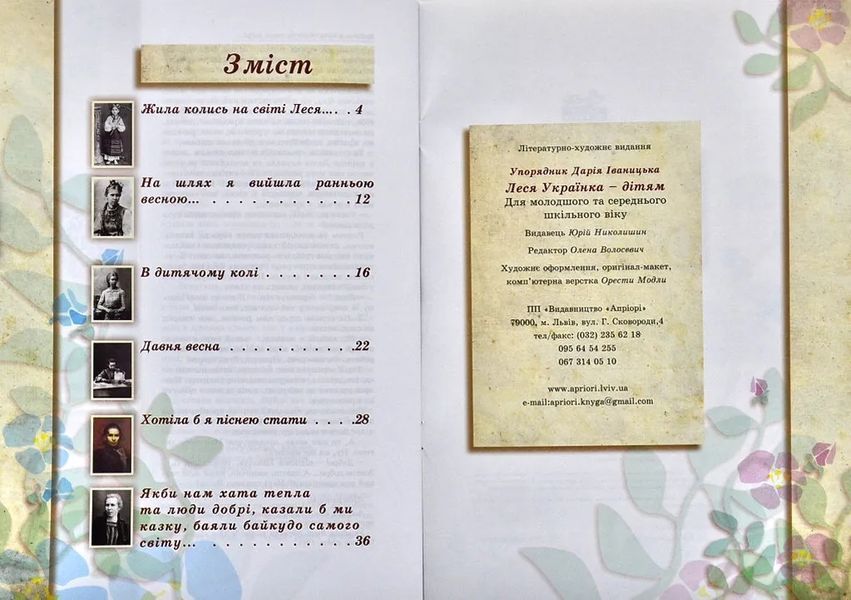 Зміст
Жила колись на світі Леся... . . 4
На шлях я вийшла ранньою
весною... . . . . . . . . . . . 12
В дитячому колі . . . . . . . 16
Давня весна . . . . . . . . . .22
Хотіла б я піснею стати . . . .28
Якби нам хата тепла
та люди добрі, казали б ми
казку, баяли байкудо самого
світу... . . . . . . . . . . . 36
Літературно-художнє видання
Упорядник Дарія Іваницька
Леся Українка – дітям
Для молодшого та середнього
шкільного віку
Видавець Юрій Николишин
Редактор Олена Волосевич
Художнє оформлення, оригінал-макет,
комп’ютерна верстка Орести Модли
ПП «Видавництво «Апріорі»
79000, м. Львів, вул. Г. Сковороди,4
тел/факс: (032) 235 62 18
095 64 54 255
067 314 05 10
www.apriori.lviv.ua
e-mail:apriori.knyga@gmail.com